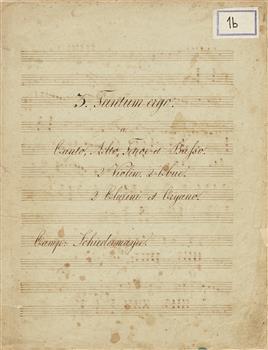 1b
3. Tantum ergo.
a
Canto, Alto, Tenore et Basso.
2 Violin. 2 Oboe.
2 Clarini et Organo.
Comp: Schiedermayr.